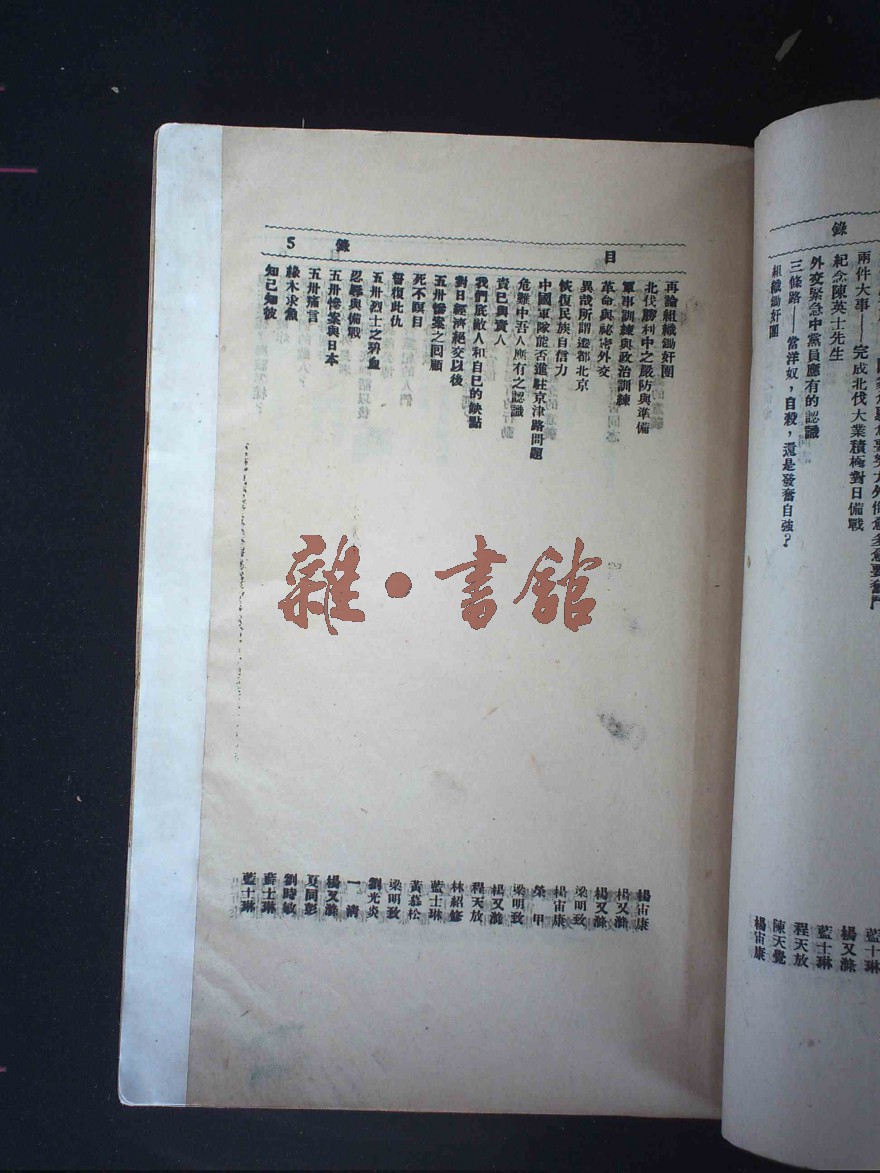 錄
兩件大事——完成北伐大業積極對日備戰 楊又滌
紀念陳英士先生 藍士琳
外交緊急中黨員應有的認識 程天放
三條路——當洋奴，自殺，還是發奮自強？ 陳天覺
組織鋤奸團 楊宙康
目 錄 5
再論組織鋤奸團 楊宙康
北伐勝利中之嚴防與準備 楊又滌
軍事訓練與政治訓練 楊又滌
革命與祕密外交 梁明致
異哉所謂遷都北京 楊宙康
恢復民族自信力 榮甲
中國軍隊能否進駐京津路問題 梁明致
危難中吾人應有之認識 楊又滌
責已與責人 程天放
我們底敵人和自已的缺點 林紹修
對日經濟絕交以後 藍士琳
五卅慘案之回顧 黃慕松
死不瞑目 梁明致
誓復此仇 劉光炎
五卅烈士之碧血 一清
忍辱與備戰 楊又滌
五卅慘案與日本 夏同彭
五卅痛言 劉時敏
緣木求魚 藍士琳
知已知彼 藍士琳
雜·書館